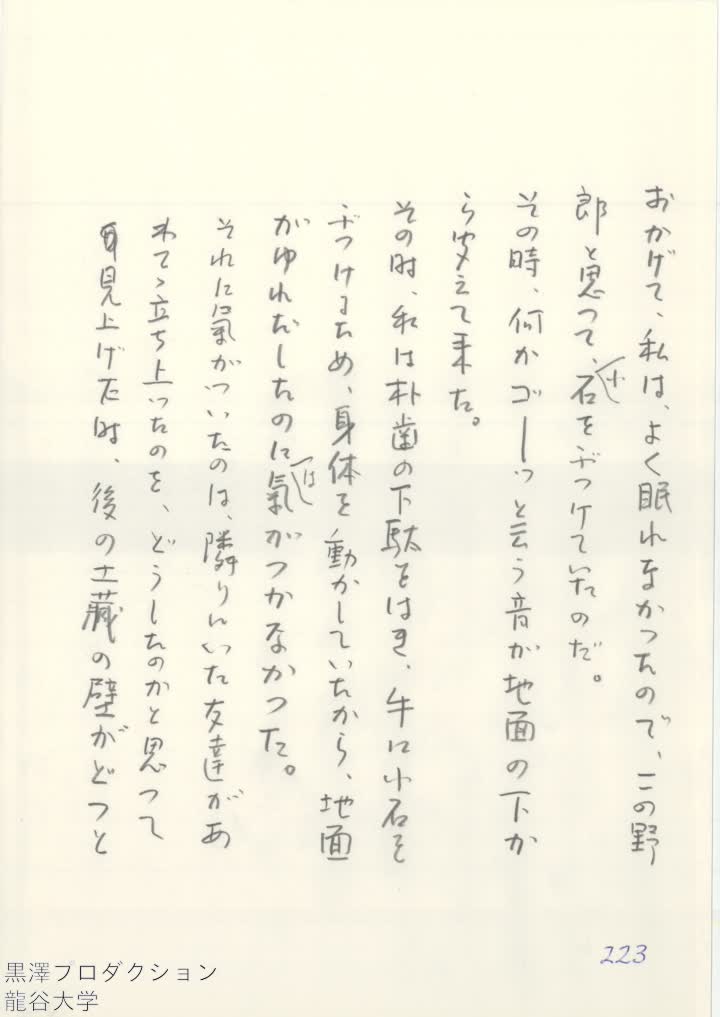 おかげで、私は、よく眠れなかつたので、この野
郎と思つて、小石をぶつけていたのだ。
その時、何かゴーッと云う音が地面の下か
ら聞えて来た。
その時、私は朴歯の下駄をはき、牛に小石を
ぶつけるため、身体を動かしていたから、地面
がゆれだしたのには氣がつかなかつた。
それに氣がついたのは、隣りにいた友達があ
わてゝ立ち上つたのを、どうしたのかと思つて
見上げた時、後の土蔵の壁がどつと
223
黒澤プロダクション
龍谷大学